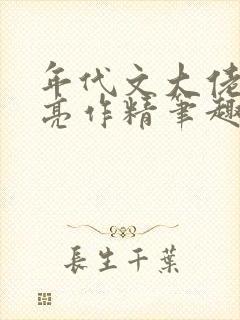 年代文大佬
亮作精筆趣
長生千葉